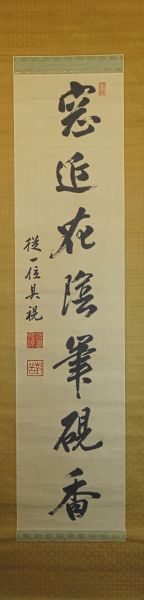 窓近花陰筆硯香
從一位具視